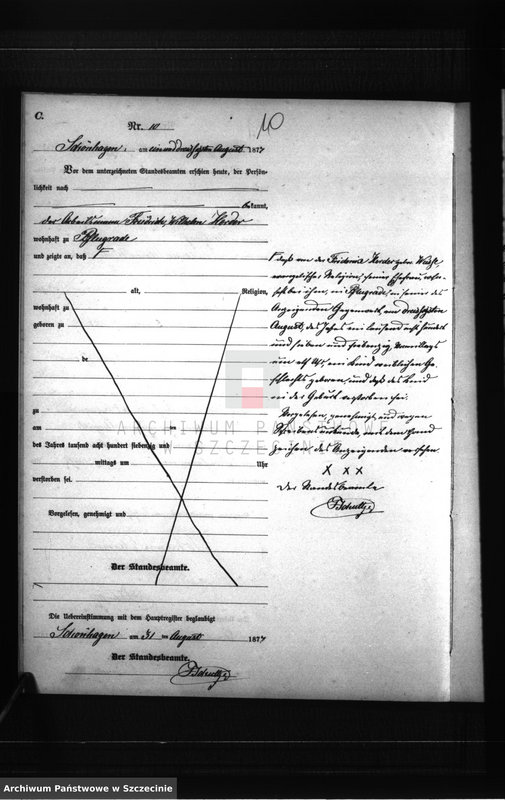 C.
Nr. 10
10
Schönhagen, am einunddreißigsten August 1877
Vor dem unterzeichneten Standesbeamten erschien heute, der Persön-
lichkeit nach
bekannt,
der Arbeitsmann Friedrich, Wilhelm Herder
wohnhaft zu Pflugrade
und zeigte an, daß
alt, Religion,
wohnhaft zu
geboren zu
de
zu
am
des Jahres tausend acht hundert siebenzig und
mittags um Uhr
verstorben sei.
Vorgelesen, genehmigt und
Der Standesbeamte.
Die Uebereinstimmung mit dem Hauptregister beglaubigt
Schönhagen am 31 ten August 1877
Der Standesbeamte.
FSchultz
daß von der Friederica Herder geb.
evangelischer Religion, seiner Ehefrau, wohn-
haft bei ihm, in Pflugrade, in seiner des
Anzeigenden Gegenwart, am dreißigsten
August, des Jahres ein tausend acht hundert
und sieben und siebenzig Vormittags
um elf Uhr, ein Kind weiblichen Ge-
schlechts geboren, und daß das Kind
in der Geburt verstorben sei.
Vorgelesen, genehmigt und wegen
Schreibensunkunde, mit dem Hand
zeichen des Anzeigenden versehen
X X X
Der Standesbeamte
FSchultz
ARCHIWUM PAŃSTWOWE
W SZCZECINIE
Archiwum Państwowe w Szczecinie